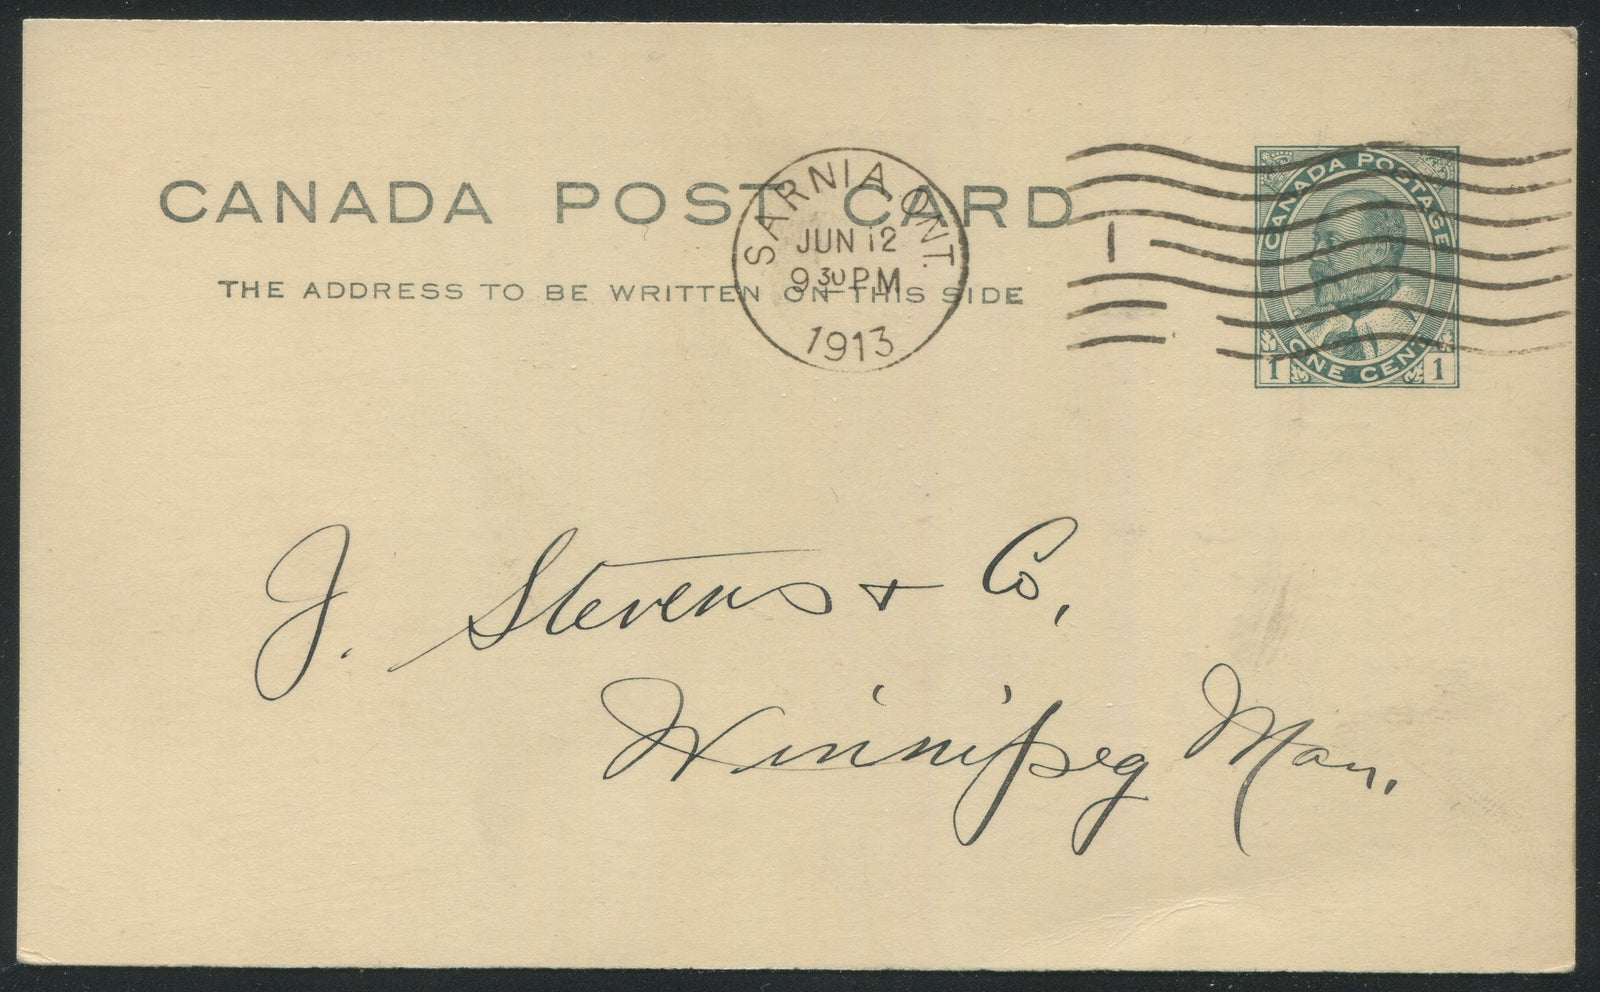 CANADA POST CARD
THE ADDRESS TO BE WRITTEN ON THIS SIDE
SARNIA, ONT.
JUN 12
9 30 PM
1913
1
CANADA POSTAGE
ONE CENT
1 1
J. Stevens & Co,
Winnipeg Man.